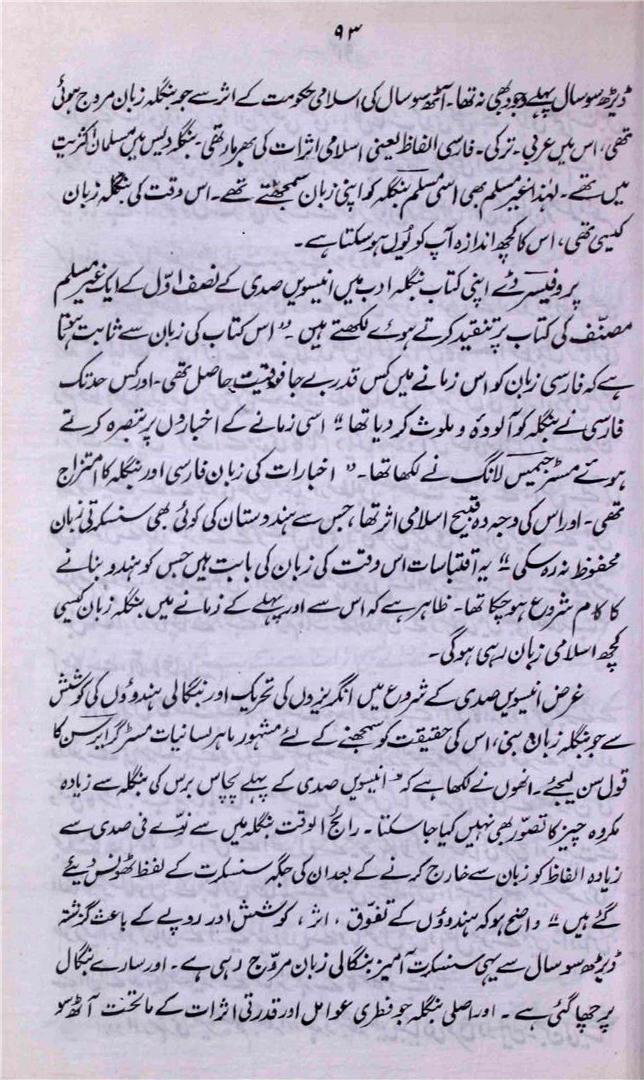 ۹۳
ڈیڑھ سو سال پہلے وجود بھی نہ تھا۔ آٹھ سو سال کی اسلامی حکومت کے اثر سے جو بنگلہ زبان مروج ہوئی
تھی، اس میں عربی۔ ترکی۔ فارسی الفاظ یعنی اسلامی اثرات کی بھرمار تھی بنگلہ دیس میں مسلمان اکثریت
میں تھے۔ لہٰذا غیر مسلم بھی اسی مسلم بنگلہ کو اپنی زبان سمجھتے تھے۔ اس وقت کی بنگلہ زبان
کیسی تھی، اس کا کچھ اندازہ آپ کو یُوں ہو سکتا ہے۔
پروفیسر ڈے اپنی کتاب بنگلہ ادب میں انیسویں صدی کے نصف اوّل کے ایک غیر مسلم
مصنّف کی کتاب پر تنقید کرتے ہوئے لکھتے ہیں۔ "اس کتاب کی زبان سے ثابت ہوتا
ہے کہ فارسی زبان کو اس زمانے میں کس قدر بے جا فوقیت حاصل تھی۔ اور کس حد تک
فارسی نے بنگلہ کو آلودہ و ملوث کر دیا تھا" اسی زمانے کے اخباروں پر تبصرہ کرتے
ہوئے مسٹر جیمس لانگ نے لکھا تھا۔ "اخبارات کی زبان فارسی اور بنگلہ کا امتزاج
تھی۔ اور اس کی وجہ وہ قبیح اسلامی اثر تھا، جس سے ہندوستان کی کوئی بھی سنسکرتی زبان
محفوظ نہ رہ سکی" یہ اقتباسات اس وقت کی زبان کی بابت ہیں جس کو ہندو بنانے
کا کام شروع ہو چکا تھا۔ ظاہر ہے کہ اس سے اور پہلے کے زمانے میں بنگلہ زبان کیسی
کچھ اسلامی زبان رہی ہوگی۔
غرض انیسویں صدی کے شروع میں انگریزوں کی تحریک اور بنگالی ہندوؤں کی کوشش
سے جو بنگلہ زبان بنی، اس کی حقیقت کو سمجھنے کے لئے مشہور ماہر لسانیات مسٹر گرایرسن کا
قول سن لیجئے۔ انھوں نے لکھا ہے کہ "انیسویں صدی کے پہلے پچاس برس کی بنگلہ سے زیادہ
مکروہ چیز کا تصوّر بھی نہیں کیا جا سکتا۔ رائج الوقت بنگلہ میں سے نوّے فی صدی سے
زیادہ الفاظ کو زبان سے خارج کرنے کے بعد ان کی جگہ سنسکرت کے لفظ ٹھونس دیئے
گئے ہیں" واضح ہو کہ ہندوؤں کے تفوّق، اثر، کوشش اور روپے کے باعث گزشتہ
ڈیڑھ سو سال سے یہی سنسکرت آمیز بنگالی زبان مروّج رہی ہے۔ اور سارے بنگال
پر چھا گئی ہے۔ اور اصلی بنگلہ جو فطری عوامل اور قدرتی اثرات کے ماتحت آٹھ سو